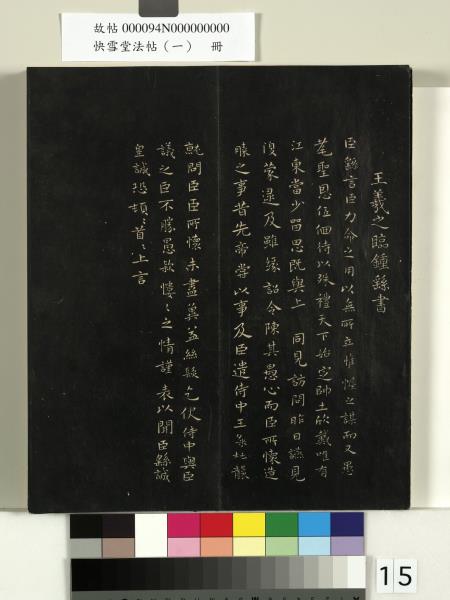 故帖 000094N000000000
快雪堂法帖（一） 冊
王羲之臨鍾繇書
臣繇言臣力命之用以無所立惟幄之謀而又愚
耄聖恩低佪待以殊禮天下始定帥土欣戴唯有
江東當少留思既與上 同見訪問昨日讌見
復蒙逮及雖緣詔令陳其愚心而臣所懷造
膝之事昔先帝嘗以事及臣遣侍中王粲杜襲
就問臣臣所懷未盡冀益絲髮乞使侍中與臣
議之臣不勝愚款慺〻之情謹表以聞臣繇誠
皇誠恐頓〻首〻上言
15